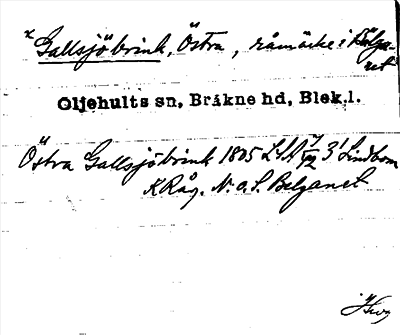 x Gallsjöbrink, Östra, råmärke i Belga-
net
Oljehults sn, Bräkne hd, Blek.l.
Östra Gallsjöbrink 1805 LSA 3' Lindbom
K Råg. N. o. S. Belganet